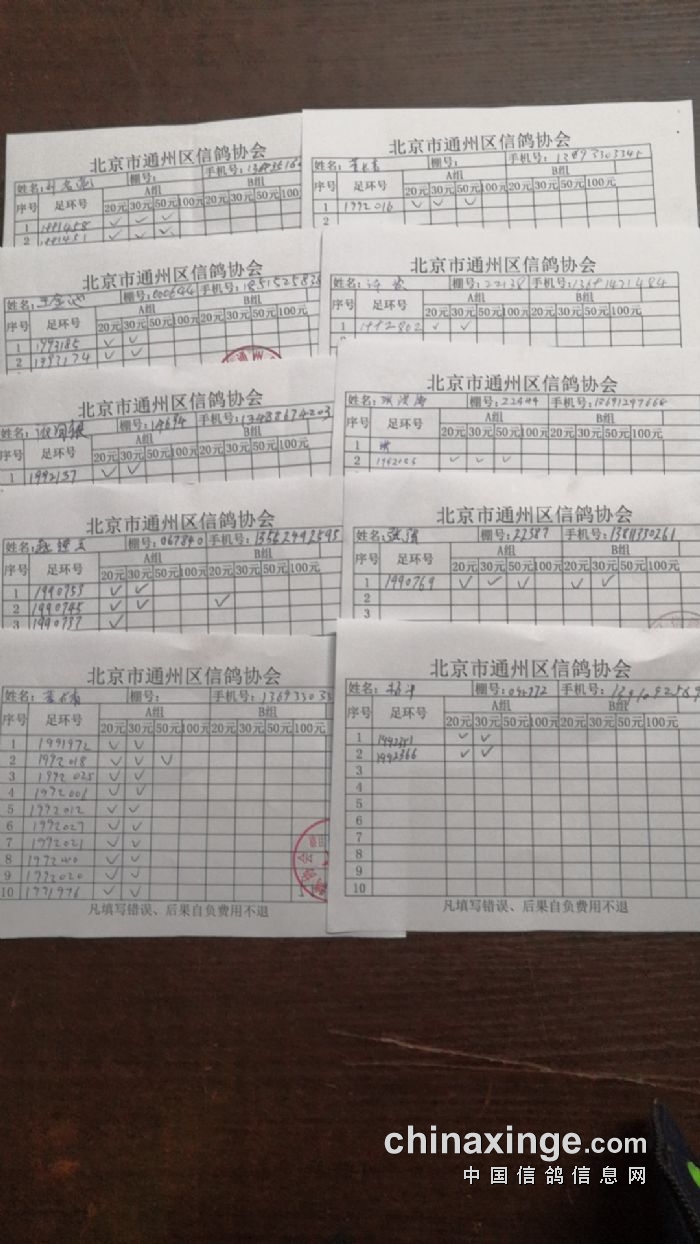 北京市通州区信鸽协会
姓名: 棚号: 手机号:
序号 足环号 A组 B组
20元 30元 50元 100元 20元 30元 50元 100元
1 1991458 ✓ ✓ ✓
2 1991451 ✓ ✓ ✓
北京市通州区信鸽协会
姓名: 棚号: 手机号:13693303345
序号 足环号 A组 B组
20元 30元 50元 100元 20元 30元 50元 100元
1 1992016 ✓ ✓ ✓
2
北京市通州区信鸽协会
姓名: 棚号:000644 手机号:
序号 足环号 A组 B组
20元 30元 50元 100元 20元 30元 50元 100元
1 1993185 ✓ ✓
2 1993174 ✓ ✓
北京市通州区信鸽协会
姓名: 棚号:22138 手机号:13691471484
序号 足环号 A组 B组
20元 30元 50元 100元 20元 30元 50元 100元
1 1992802 ✓ ✓
北京市通州区信鸽协会
姓名: 棚号:14694 手机号:13488674203
序号 足环号 A组 B组
20元 30元 50元 100元 20元 30元 50元 100元
1 1992137 ✓ ✓
北京市通州区信鸽协会
姓名: 棚号: 手机号:13691297668
序号 足环号 A组 B组
20元 30元 50元 100元 20元 30元 50元 100元
1
2 ✓ ✓ ✓
北京市通州区信鸽协会
姓名: 棚号:067840 手机号:13562492595
序号 足环号 A组 B组
20元 30元 50元 100元 20元 30元 50元 100元
1 1990753 ✓ ✓
2 1990745 ✓ ✓ ✓
3 1990737 ✓
北京市通州区信鸽协会
姓名:张强 棚号:22587 手机号:13811330261
序号 足环号 A组 B组
20元 30元 50元 100元 20元 30元 50元 100元
1 1990769 ✓ ✓ ✓ ✓ ✓
2
3
北京市通州区信鸽协会
姓名: 棚号: 手机号:136933033
序号 足环号 A组 B组
20元 30元 50元 100元 20元 30元 50元 100元
1 1991972 ✓ ✓
2 1992018 ✓ ✓ ✓
3 1992025 ✓ ✓
4 1992001 ✓ ✓
5 1992012 ✓ ✓
6 1992027 ✓ ✓
7 1992021 ✓ ✓
8 ✓ ✓
9 1992020 ✓ ✓
10 1991976 ✓ ✓
凡填写错误、后果自负费用不退
北京市通州区信鸽协会
姓名: 棚号: 手机号:
序号 足环号 A组 B组
20元 30元 50元 100元 20元 30元 50元 100元
1 1992351 ✓ ✓
2 1992366 ✓ ✓
3
4
5
6
7
8
9
10
凡填写错误、后果自负费用不退
chinaxinge.com
中国信鸽信息网